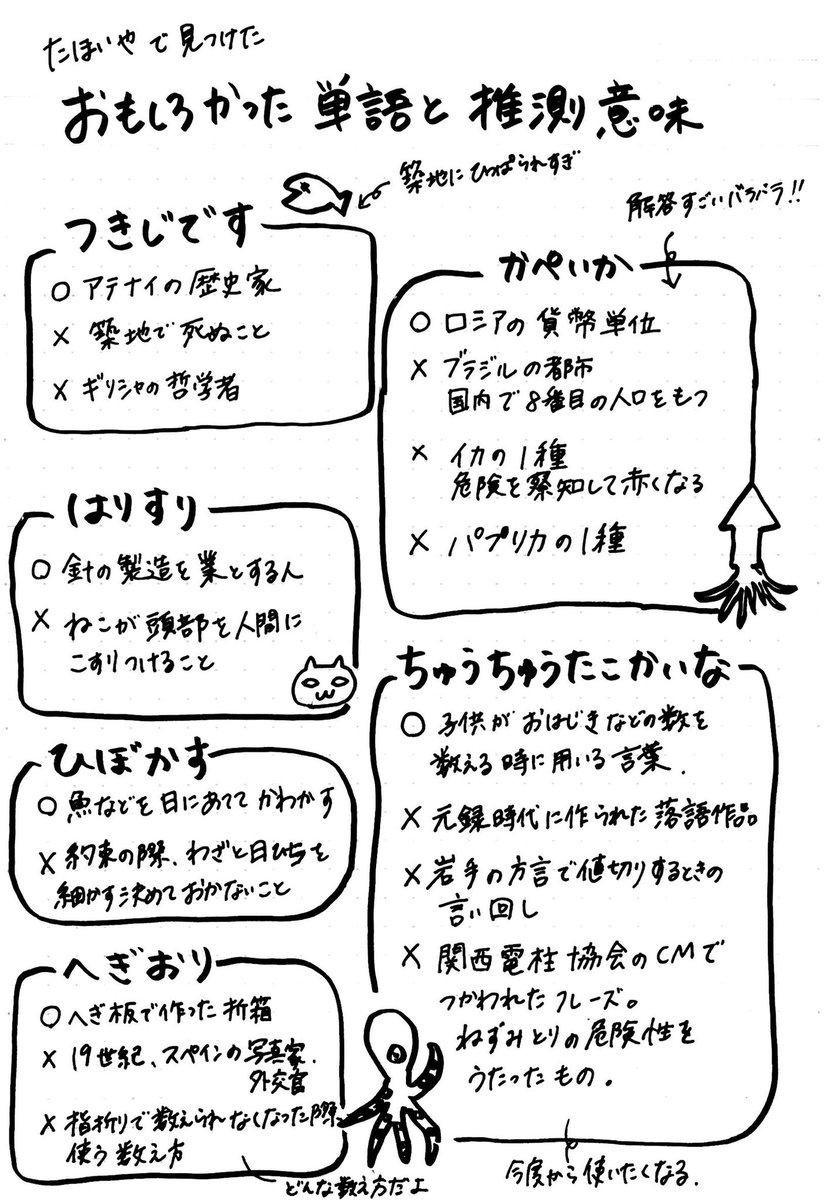 たほいやで見つけた
おもしろかった単語と推測意味
築地にひっぱられすぎ
つきじです
○ アテナイの歴史家
× 築地で死ぬこと
× ギリシャの哲学者
解答すごいバラバラ!!
かぺいか
○ ロシアの貨幣単位
× ブラジルの都市
国内で8番目の人口をもつ
× イカの1種
危険を察知して赤くなる
× パプリカの1種
はりすり
○ 針の製造を業とする人
× ねこが頭部を人間に
こすりつけること
ちゅうちゅうたこかいな
○ 子供がおはじきなどの数を
数える時に用いる言葉.
× 元録時代に作られた落語作品
× 岩手の方言で値切りするときの
言い回し
× 関西電柱協会のCMで
つかわれたフレーズ。
ねずみとりの危険性を
うたったもの。
今度から使いたくなる.
ひぼかす
○ 魚などを日にあててかわかす
× 約束の際、わざと日にちを
細かす決めておかないこと
へぎおり
○ へぎ板で作った折箱
× 19世紀、スペインの写真家.
外交官
× 指折りで数えられなくなった際、
使う数え方
どんな数え方だよ